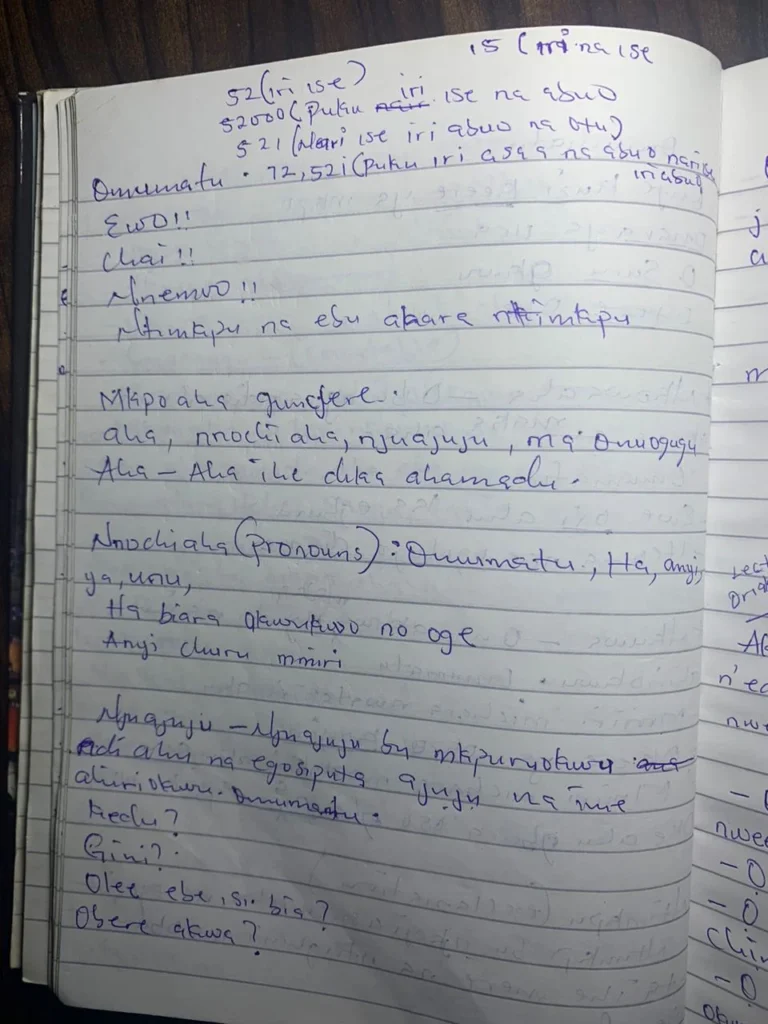 15 (iri na ise
52 (iri ise)
52000 (puku iri ise na abuo
521 (Nari ise iri abuo na otu)
Omumatu. 72,521 (puku iri asaa na abuo nari ise
iri abuo
Ewo!!
Chai!!
Nnemvo!!
Ntimkpu na ebu akara ntimkpu
Mkpoaha gunyere.
aha, nnochiaha, njuajuju, ma Onuogugu
Aha - Aha ihe dika ahamadu.
Nnochiaha (pronouns): Omumatu, Ha, anyi,
ya, unu,
Ha biara akwukwo no oge
Anyi churu mmiri
Njuajuju - Njuajuju bu mkpuruokwu
di ahu na egosiputa ajuju na ime
ahiriokwu. Omumatu.
Kedu?
Gini?
Olee ebe isi bia?
Obere akwa?
j
a
m
n'ea
nwe
- O
nwee
- O
- O
Chin
- O